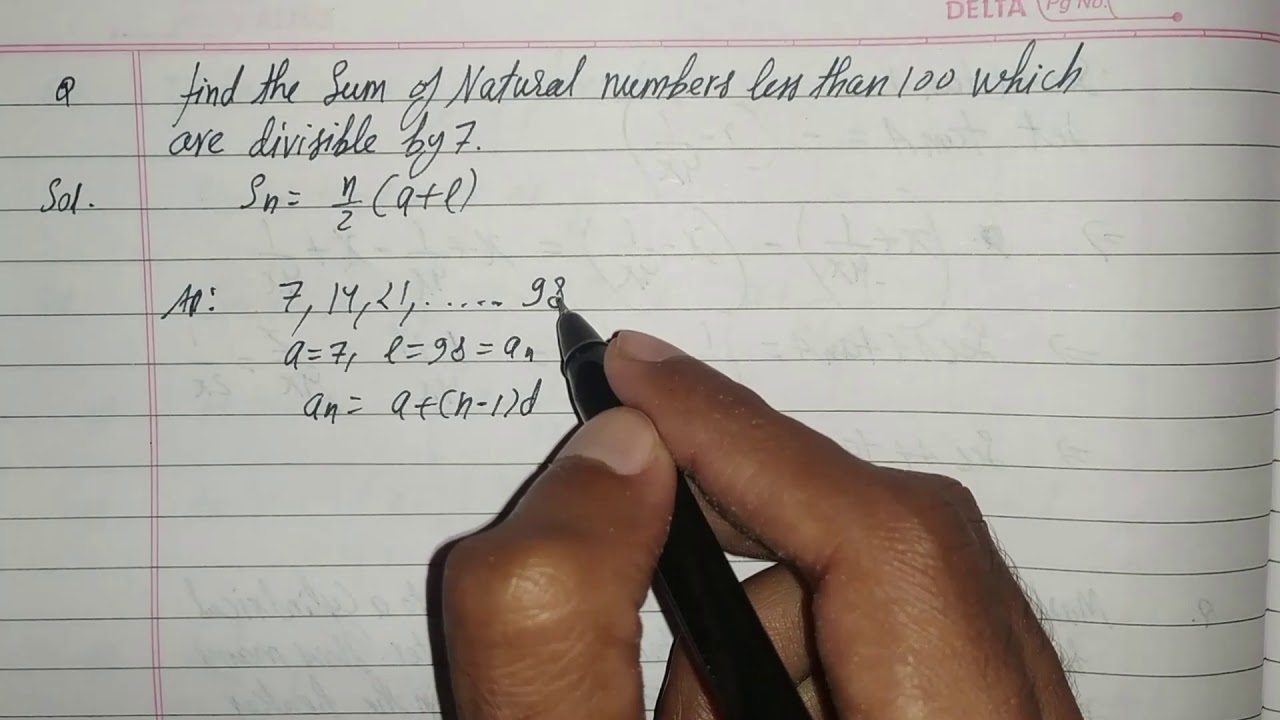 DELTA Pg No.
Q find the Sum of Natural numbers less than 100 which
are divisible by 7.
Sol. Sn = n/2 (a+l)
AP: 7, 14, 21, ..... 98
a = 7, l = 98 = an
an = a+(n-1)d